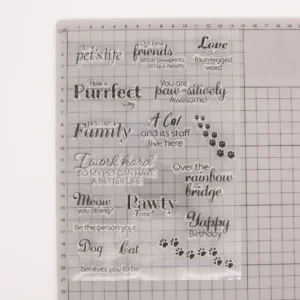 pet's life
Our best
friends
leave pawprints
on our hearts
Love
is a
four-legged
word
Have a
Purrfect
Day
You are
paw-sitively
Awesome!
pets are
Family
A Cat
and its staff
live here
I work hard
SO MY PET CAN HAVE
A BETTER LIFE
Over the
rainbow
bridge
Meow
you doing?
Pawty
Time!
Yappy
Birthday
Be the person your
Dog
Cat
believes you to be